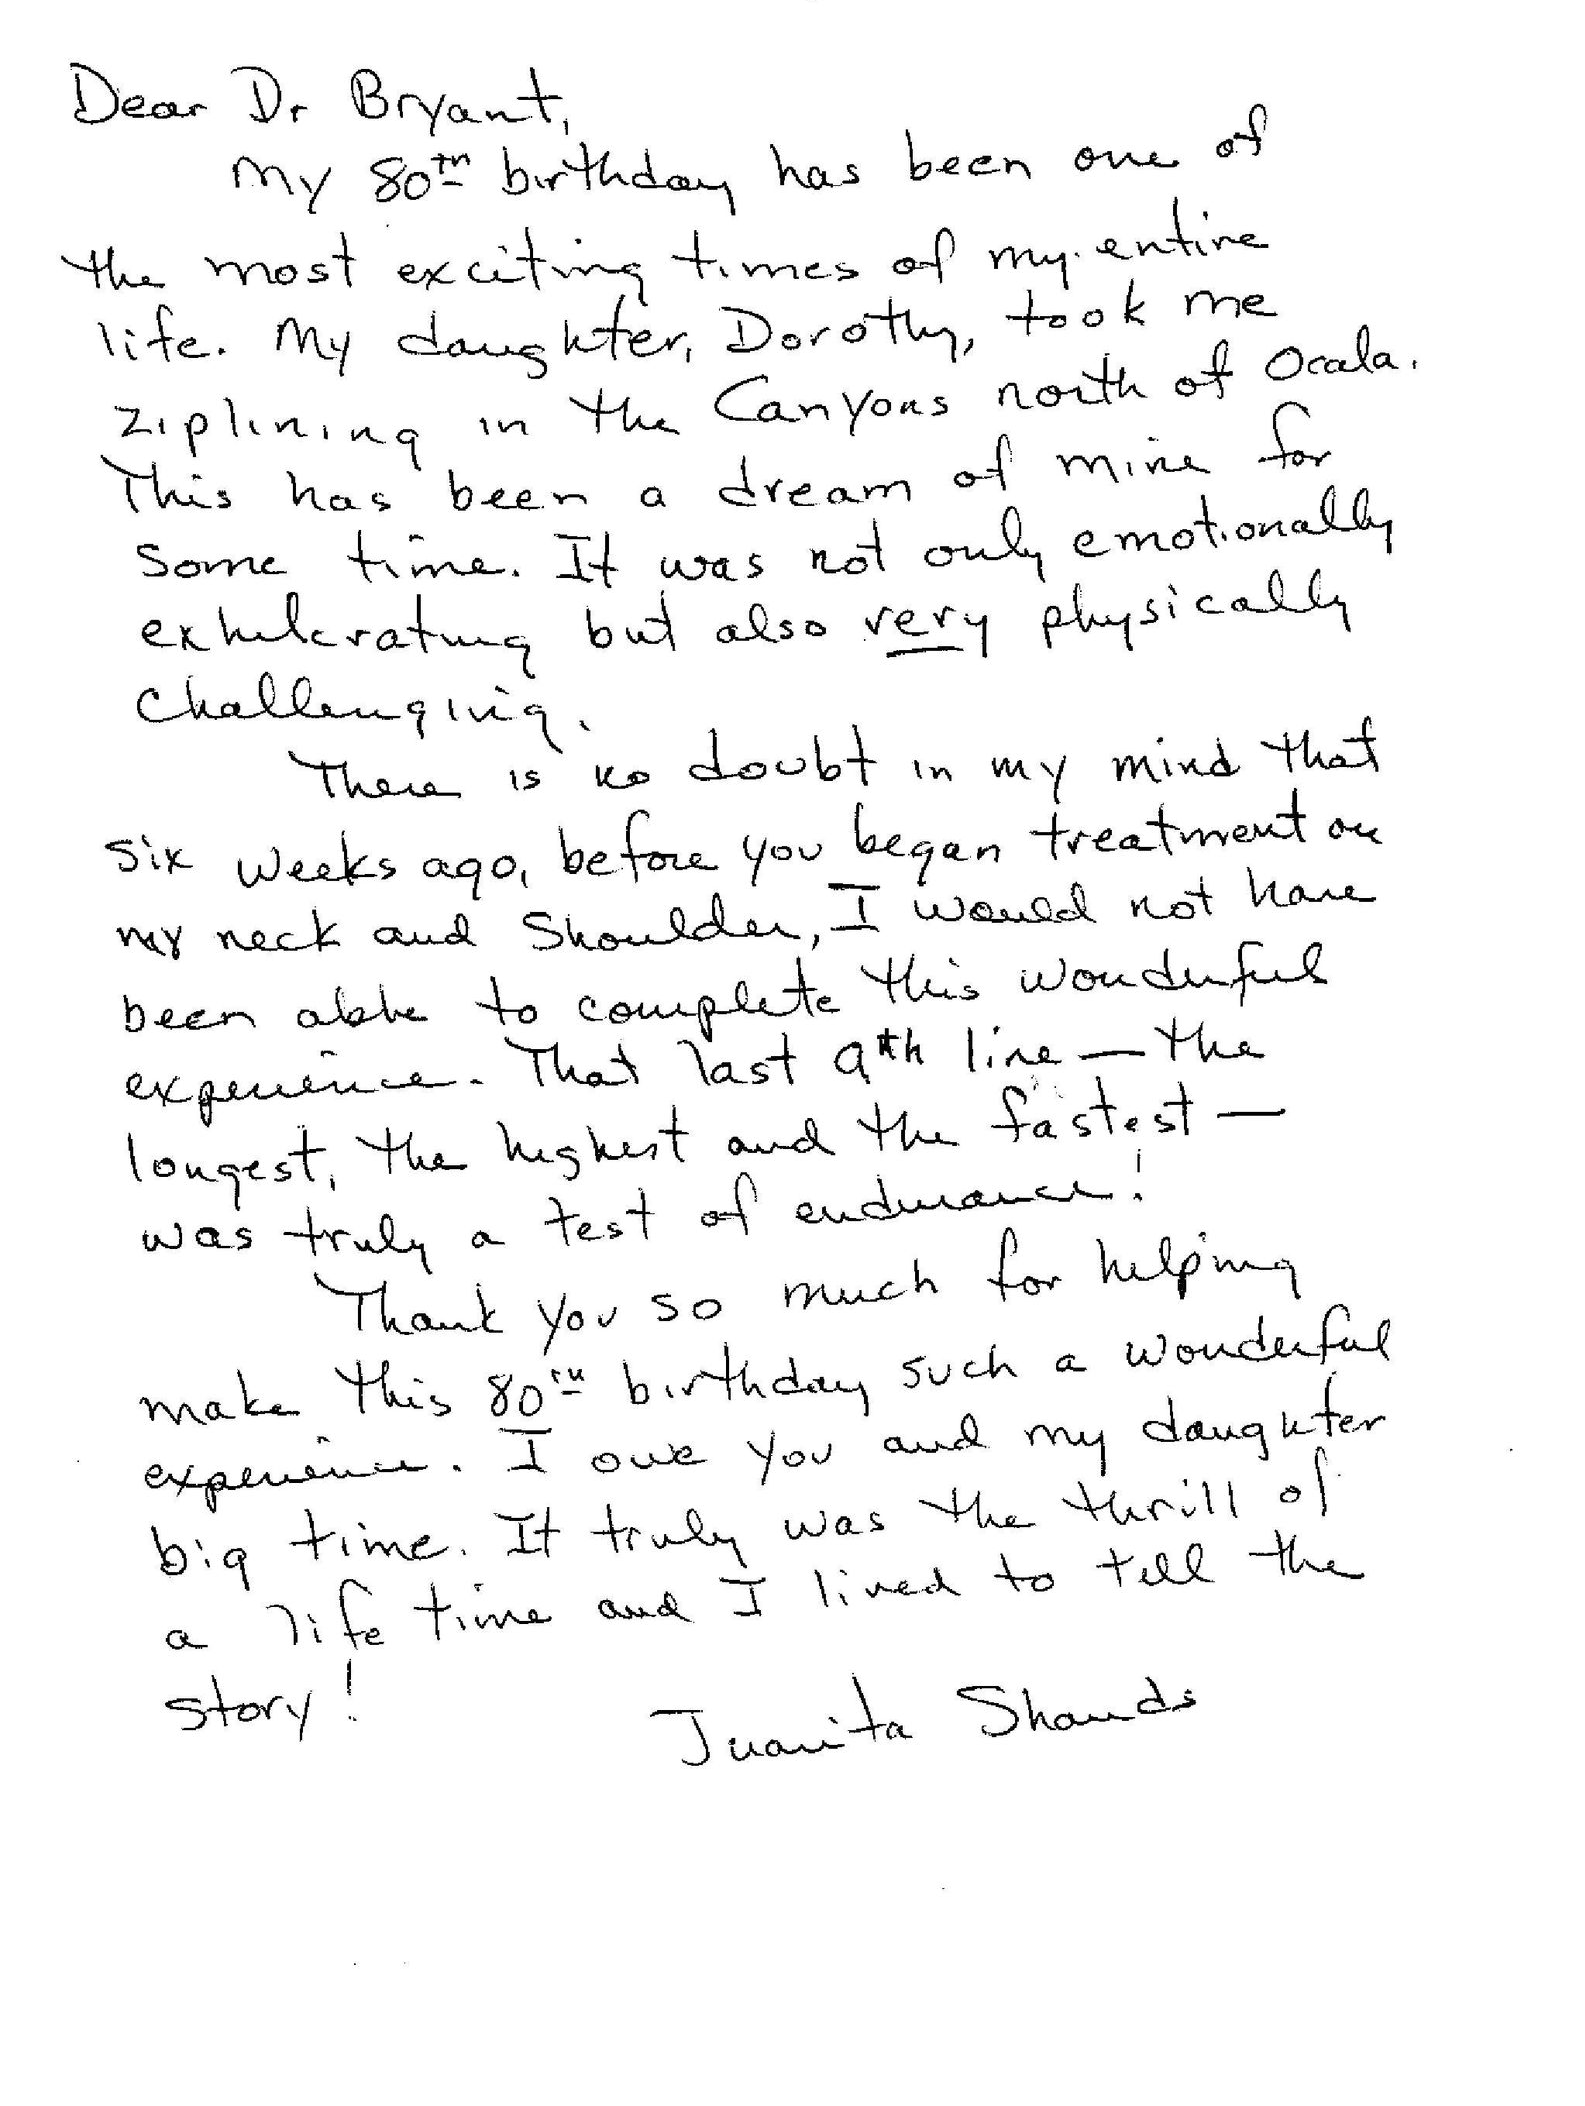 Dear Dr Bryant,
My 80th birthday has been one of
the most exciting times of my entire
life. My daughter, Dorothy, took me
ziplining in the Canyons north of Ocala.
This has been a dream of mine for
some time. It was not only emotionally
exhilerating but also very physically
challenging.
There is no doubt in my mind that
six weeks ago, before you began treatment on
my neck and shoulder, I would not have
been able to complete this wonderful
experience. That last 9th line — the
longest, the highest and the fastest —
was truly a test of endurance!
Thank you so much for helping
make this 80th birthday such a wonderful
experience. I owe you and my daughter
big time. It truly was the thrill of
a life time and I lived to tell the
story!
Juanita Shands